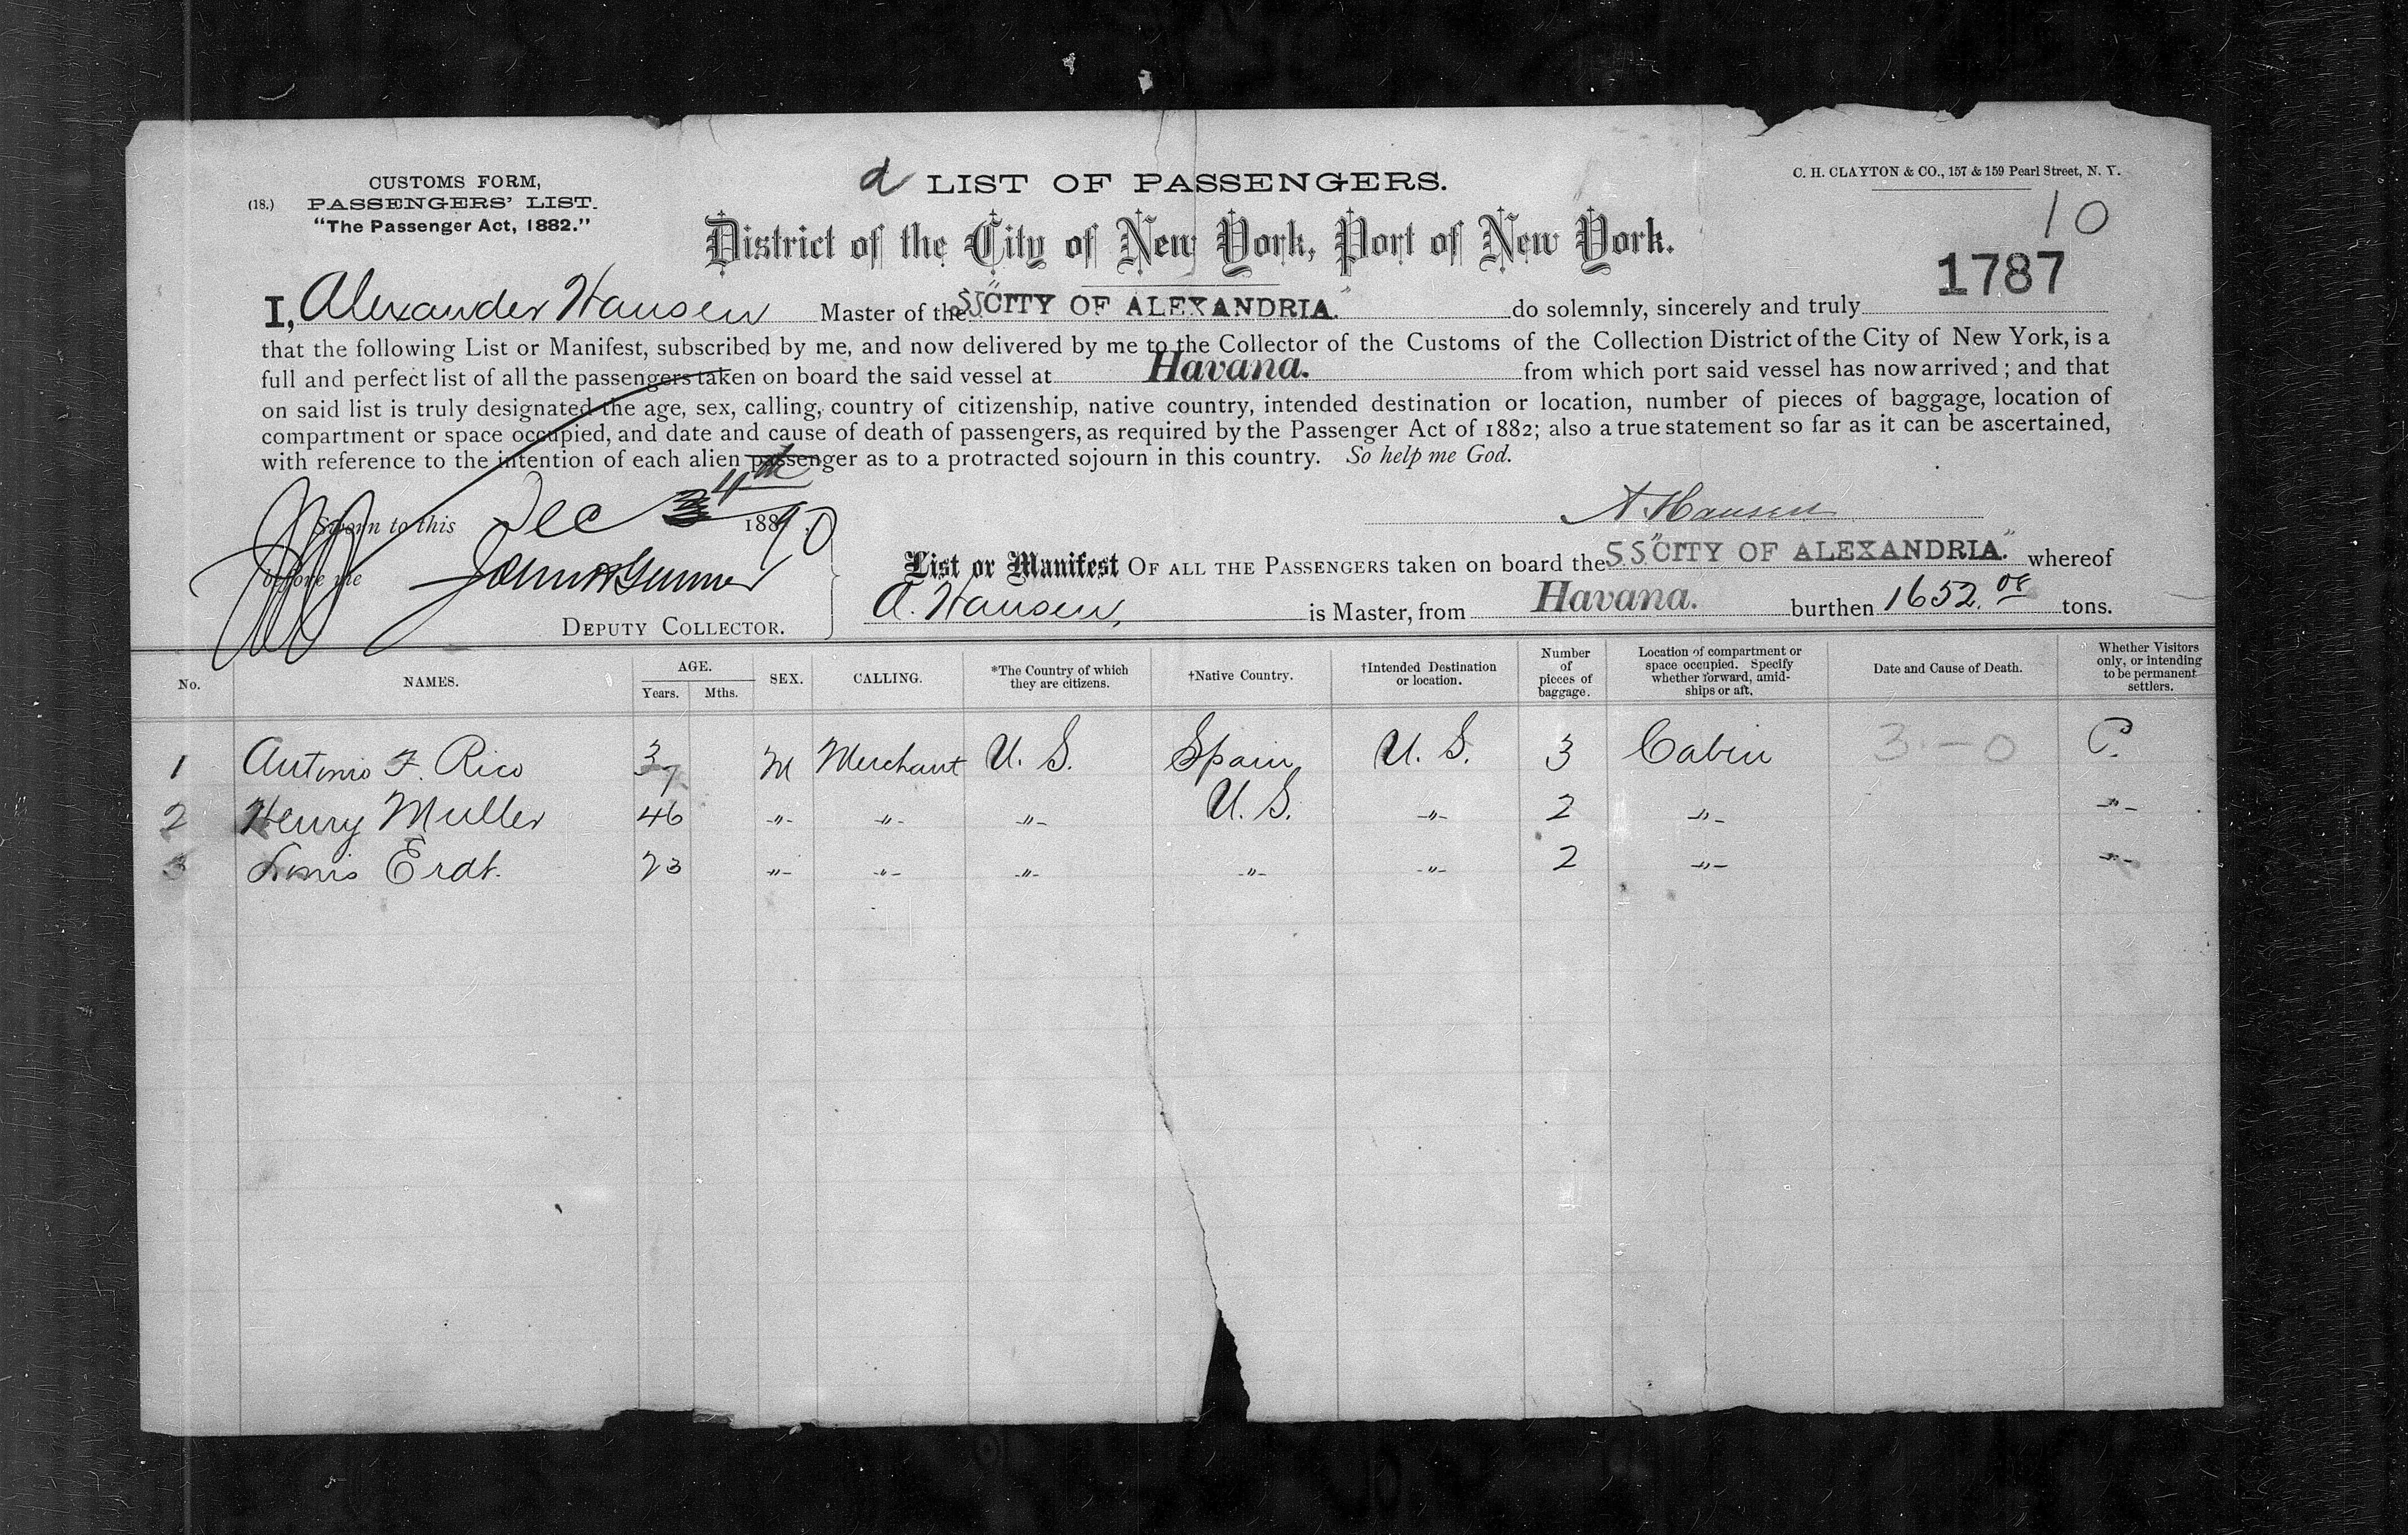 CUSTOMS FORM,
(18.) PASSENGERS' LIST.
"The Passenger Act, 1882."
a LIST OF PASSENGERS.
C. H. CLAYTON & CO., 157 & 159 Pearl Street, N. Y.
10
District of the City of New York, Port of New York.
1787
I, Alexander Hansen Master of the SS "CITY OF ALEXANDRIA." do solemnly, sincerely and truly
that the following List or Manifest, subscribed by me, and now delivered by me to the Collector of the Customs of the Collection District of the City of New York, is a
full and perfect list of all the passengers taken on board the said vessel at Havana. from which port said vessel has now arrived; and that
on said list is truly designated the age, sex, calling, country of citizenship, native country, intended destination or location, number of pieces of baggage, location of
compartment or space occupied, and date and cause of death of passengers, as required by the Passenger Act of 1882; also a true statement so far as it can be ascertained,
with reference to the intention of each alien passenger as to a protracted sojourn in this country. So help me God.
Sworn to this Dec 4th 1890
A. Hansen
before me
DEPUTY COLLECTOR.
List or Manifest OF ALL THE PASSENGERS taken on board the S.S. "CITY OF ALEXANDRIA." whereof
A. Hansen, is Master, from Havana. burthen 1652.08 tons.
No. NAMES. AGE. Years. Mths. SEX. CALLING. *The Country of which they are citizens. †Native Country. †Intended Destination or location. Number of pieces of baggage. Location of compartment or space occupied. Specify whether forward, amidships or aft. Date and Cause of Death. Whether Visitors only, or intending to be permanent settlers.
1 Antonio F. Rico 37 M Merchant U. S. Spain U. S. 3 Cabin 3-0 P.
2 Henry Muller 46 -"- -"- -"- U. S. -"- 2 -"- -"-
3 Louis Erdt. 23 -"- -"- -"- -"- -"- 2 -"- -"-